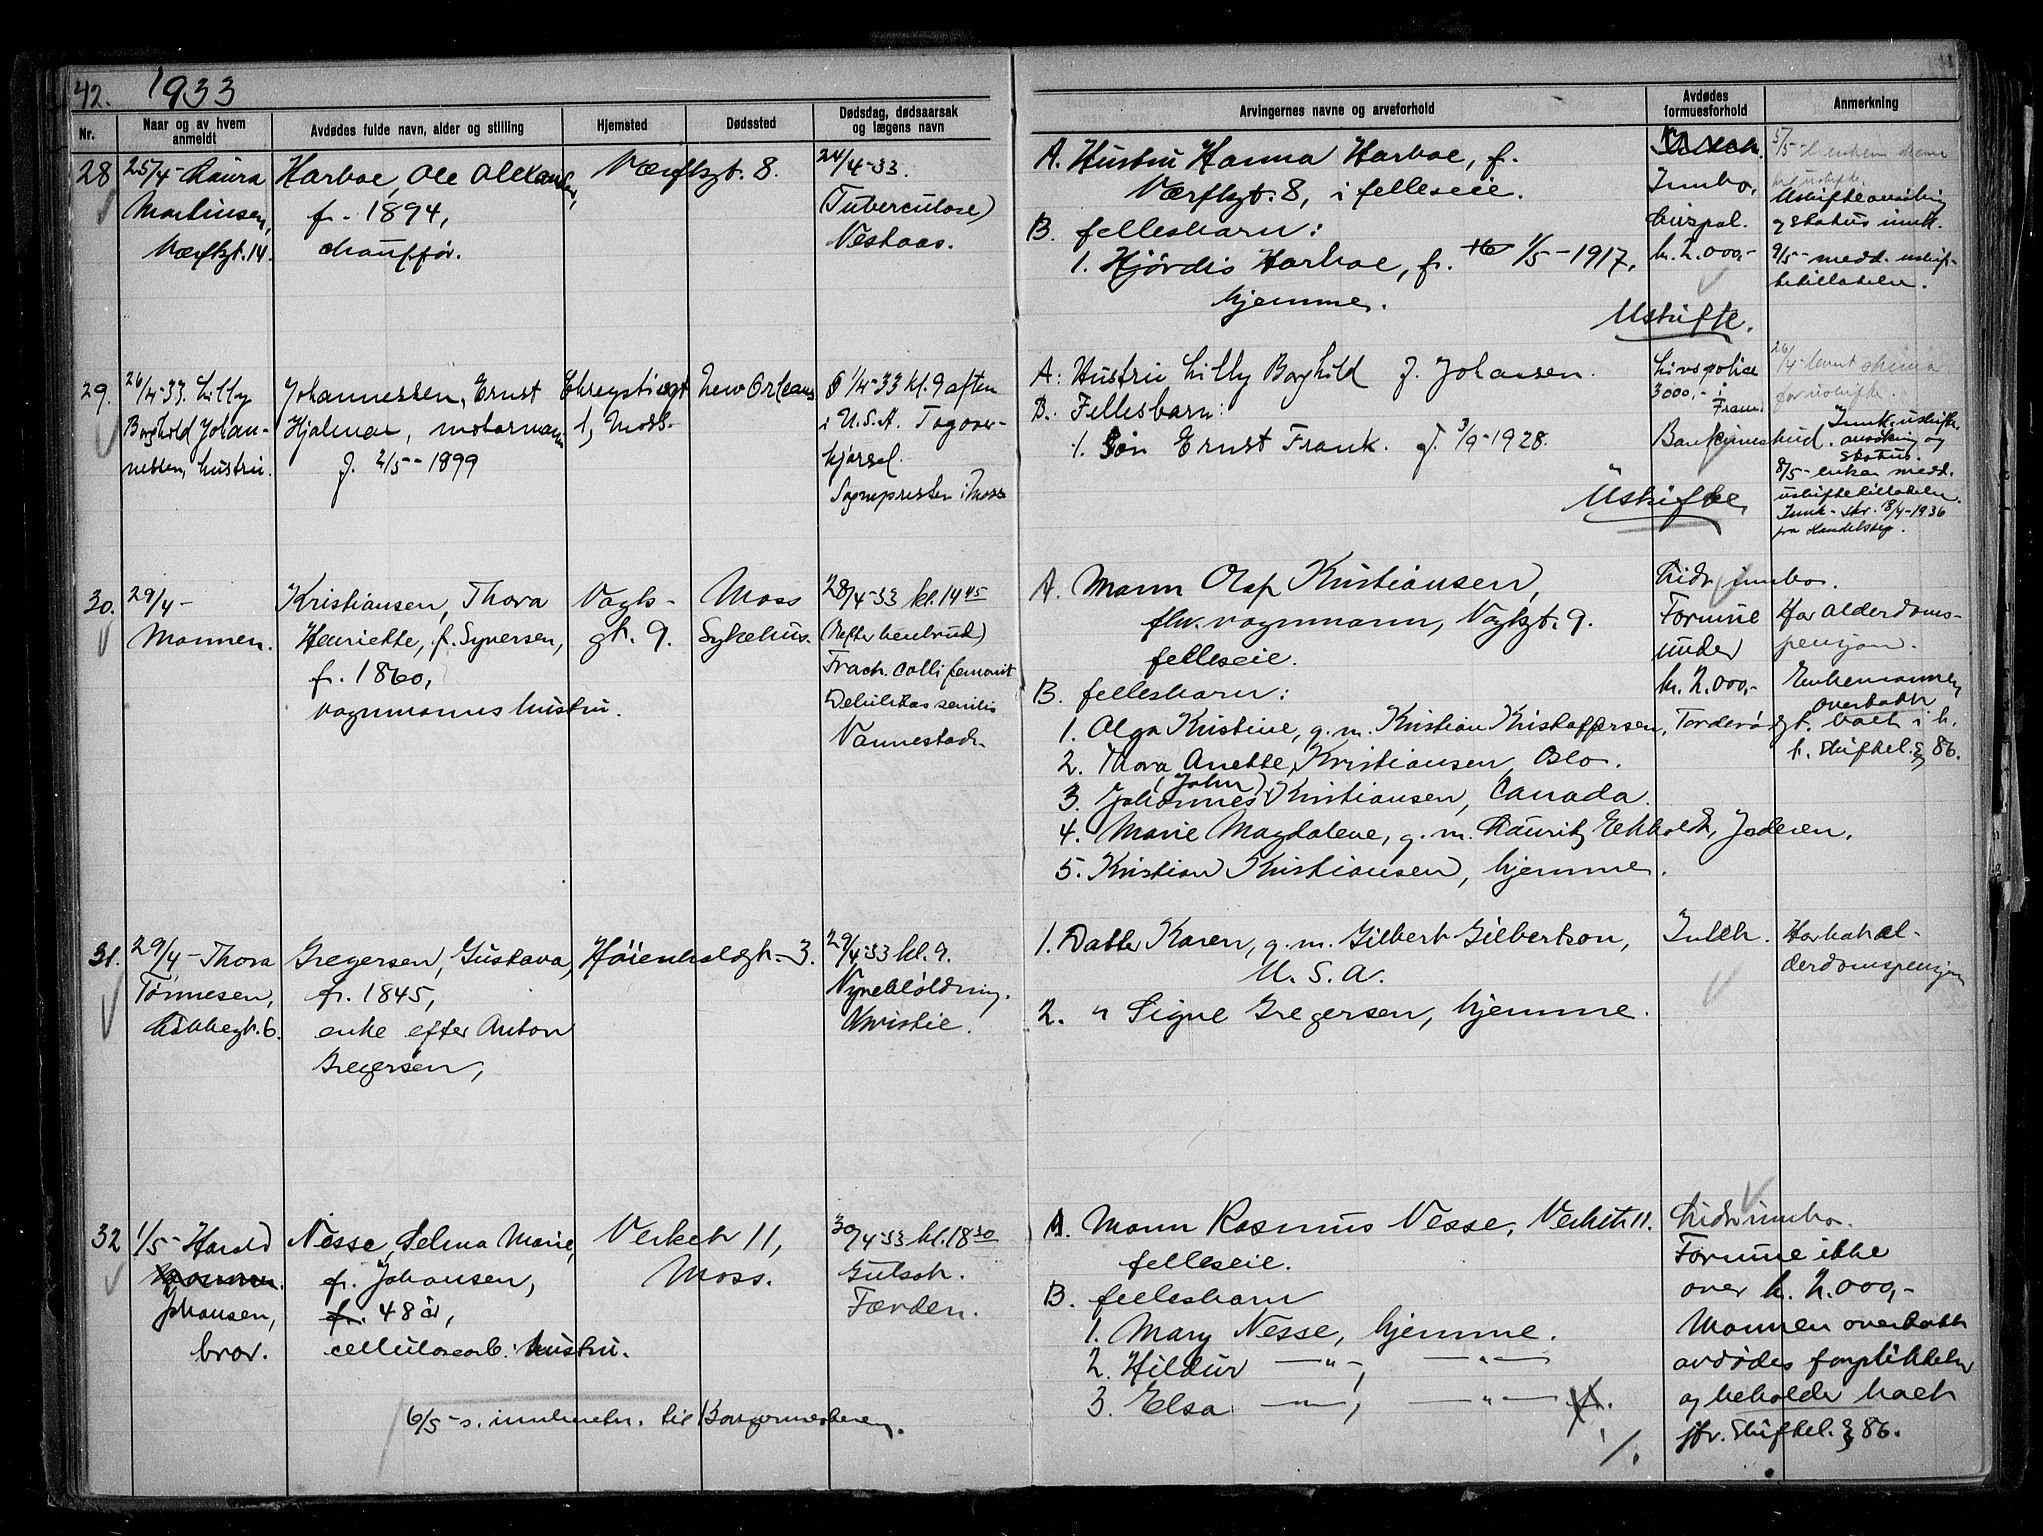 42. 1933
Nr.
Naar og av hvem anmeldt
Avdødes fulde navn, alder og stilling
Hjemsted
Dødssted
Dødsdag, dødsaarsak og lægens navn
Arvingernes navne og arveforhold
Avdødes formuesforhold
Anmerkning
28
25/4- Laura
Martinsen,
Værftgt. 14.
Harboe, Ole Alexander,
f. 1894,
chauffør.
Værftgt. 8.
24/4-33.
(Tuberculose)
Nestaas.
A. Hustru Hanna Harboe, f.
Værftgt. 8, i felleseie.
B. fellesbarn:
1. Hjørdis Harboe, f. 1/5-1917,
hjemme.
Uskifte.
Innbo,
livspol.
kr. 2.000,-
5/5-
Uskifteansøkning
og status innk.
9/5- medd. uskif-
tetillatelse.
29.
26/4-33. Lilly
Borghild Johan-
nessen, hustru.
Johannessen, Ernst
Hjalmar, motormann
f. 2/5-1899
1, Moss.
New Orleans
1/4-33 kl. 9 aften
i U.S.A. Togover-
kjørsel.
Sognepresten i Moss
A: Hustru Lilly Borghild f. Johansen.
B.: Fellesbarn:
1. Søn Ernst Frank. f. 3/9-1928.
Uskifte
Livspolice
3000,- i
Fram
26/4- levert skema
for uskifte.
Innk. uskifte-
ansøkning og
status.
8/5- enken medd.
uskiftetillatelse.
Innk. skr. 8/4-1936
fra Handelsdep.
30.
29/4-
Mannen.
Kristiansen, Thora
Henriette, f. Syversen,
f. 1860,
vognmanns hustru.
Vogts-
gt. 9.
Moss
Sykehus.
28/4-33 kl. 14 45
(efter benbrud)
Fract. colli femoris
Debilitas senilis
Vannestad.
A. Mann Olaf Kristiansen,
fhv. vognmann, Vogtgt. 9.
felleseie.
B. fellesbarn:
1. Olga Kristine, g. m. Kristian Kristoffersen, Torderødgt.
2. Thora Anette Kristiansen, Oslo.
(John)
3. Johannes Kristiansen, Canada.
4. Marie Magdalene, g. m. Lauritz Ekholdt, Jeløen.
5. Kristian Kristiansen, hjemme.
Lidt innbo.
Formue
under
kr. 2.000,-
Har alderdoms-
pensjon.
Enkemannen
overtatt
boet i h.
t. Skiftel. § 86.
31.
29/4- Thora
Tønnesen,
Gregersen, Gustava,
f. 1845,
enke efter Anton
Gregersen,
Høienhaldgt. 3.
29/4-33 kl. 9.
Nyreblødning.
Christie.
1. Datter Karen, g. m. Gilbert Gilbertson,
U. S. A.
2. " Signe Gregersen, hjemme.
Intet.
Har hat al-
derdomspensjon
32
1/5- Harald
Johansen,
bror.
Nesse, Selma Marie,
f. Johansen,
f. 48 år,
cellulosearb. hustru.
Verket 11,
Moss.
30/4-33 kl. 18 30
Gulsot.
Færden.
A. Mann Rasmus Nesse, Verket 11.
felleseie.
B. fellesbarn
1. Mary Nesse, hjemme.
2. Hildur —"—, —"—
3. Elsa —"—, —"—
Lidt innbo.
Formue ikke
over kr. 2.000,-
Mannen overtatt
avdødes forpliktelser
og beholder boet
jfr. Skiftel. § 86.
6/5- s. innberetn. til Borgermesteren.